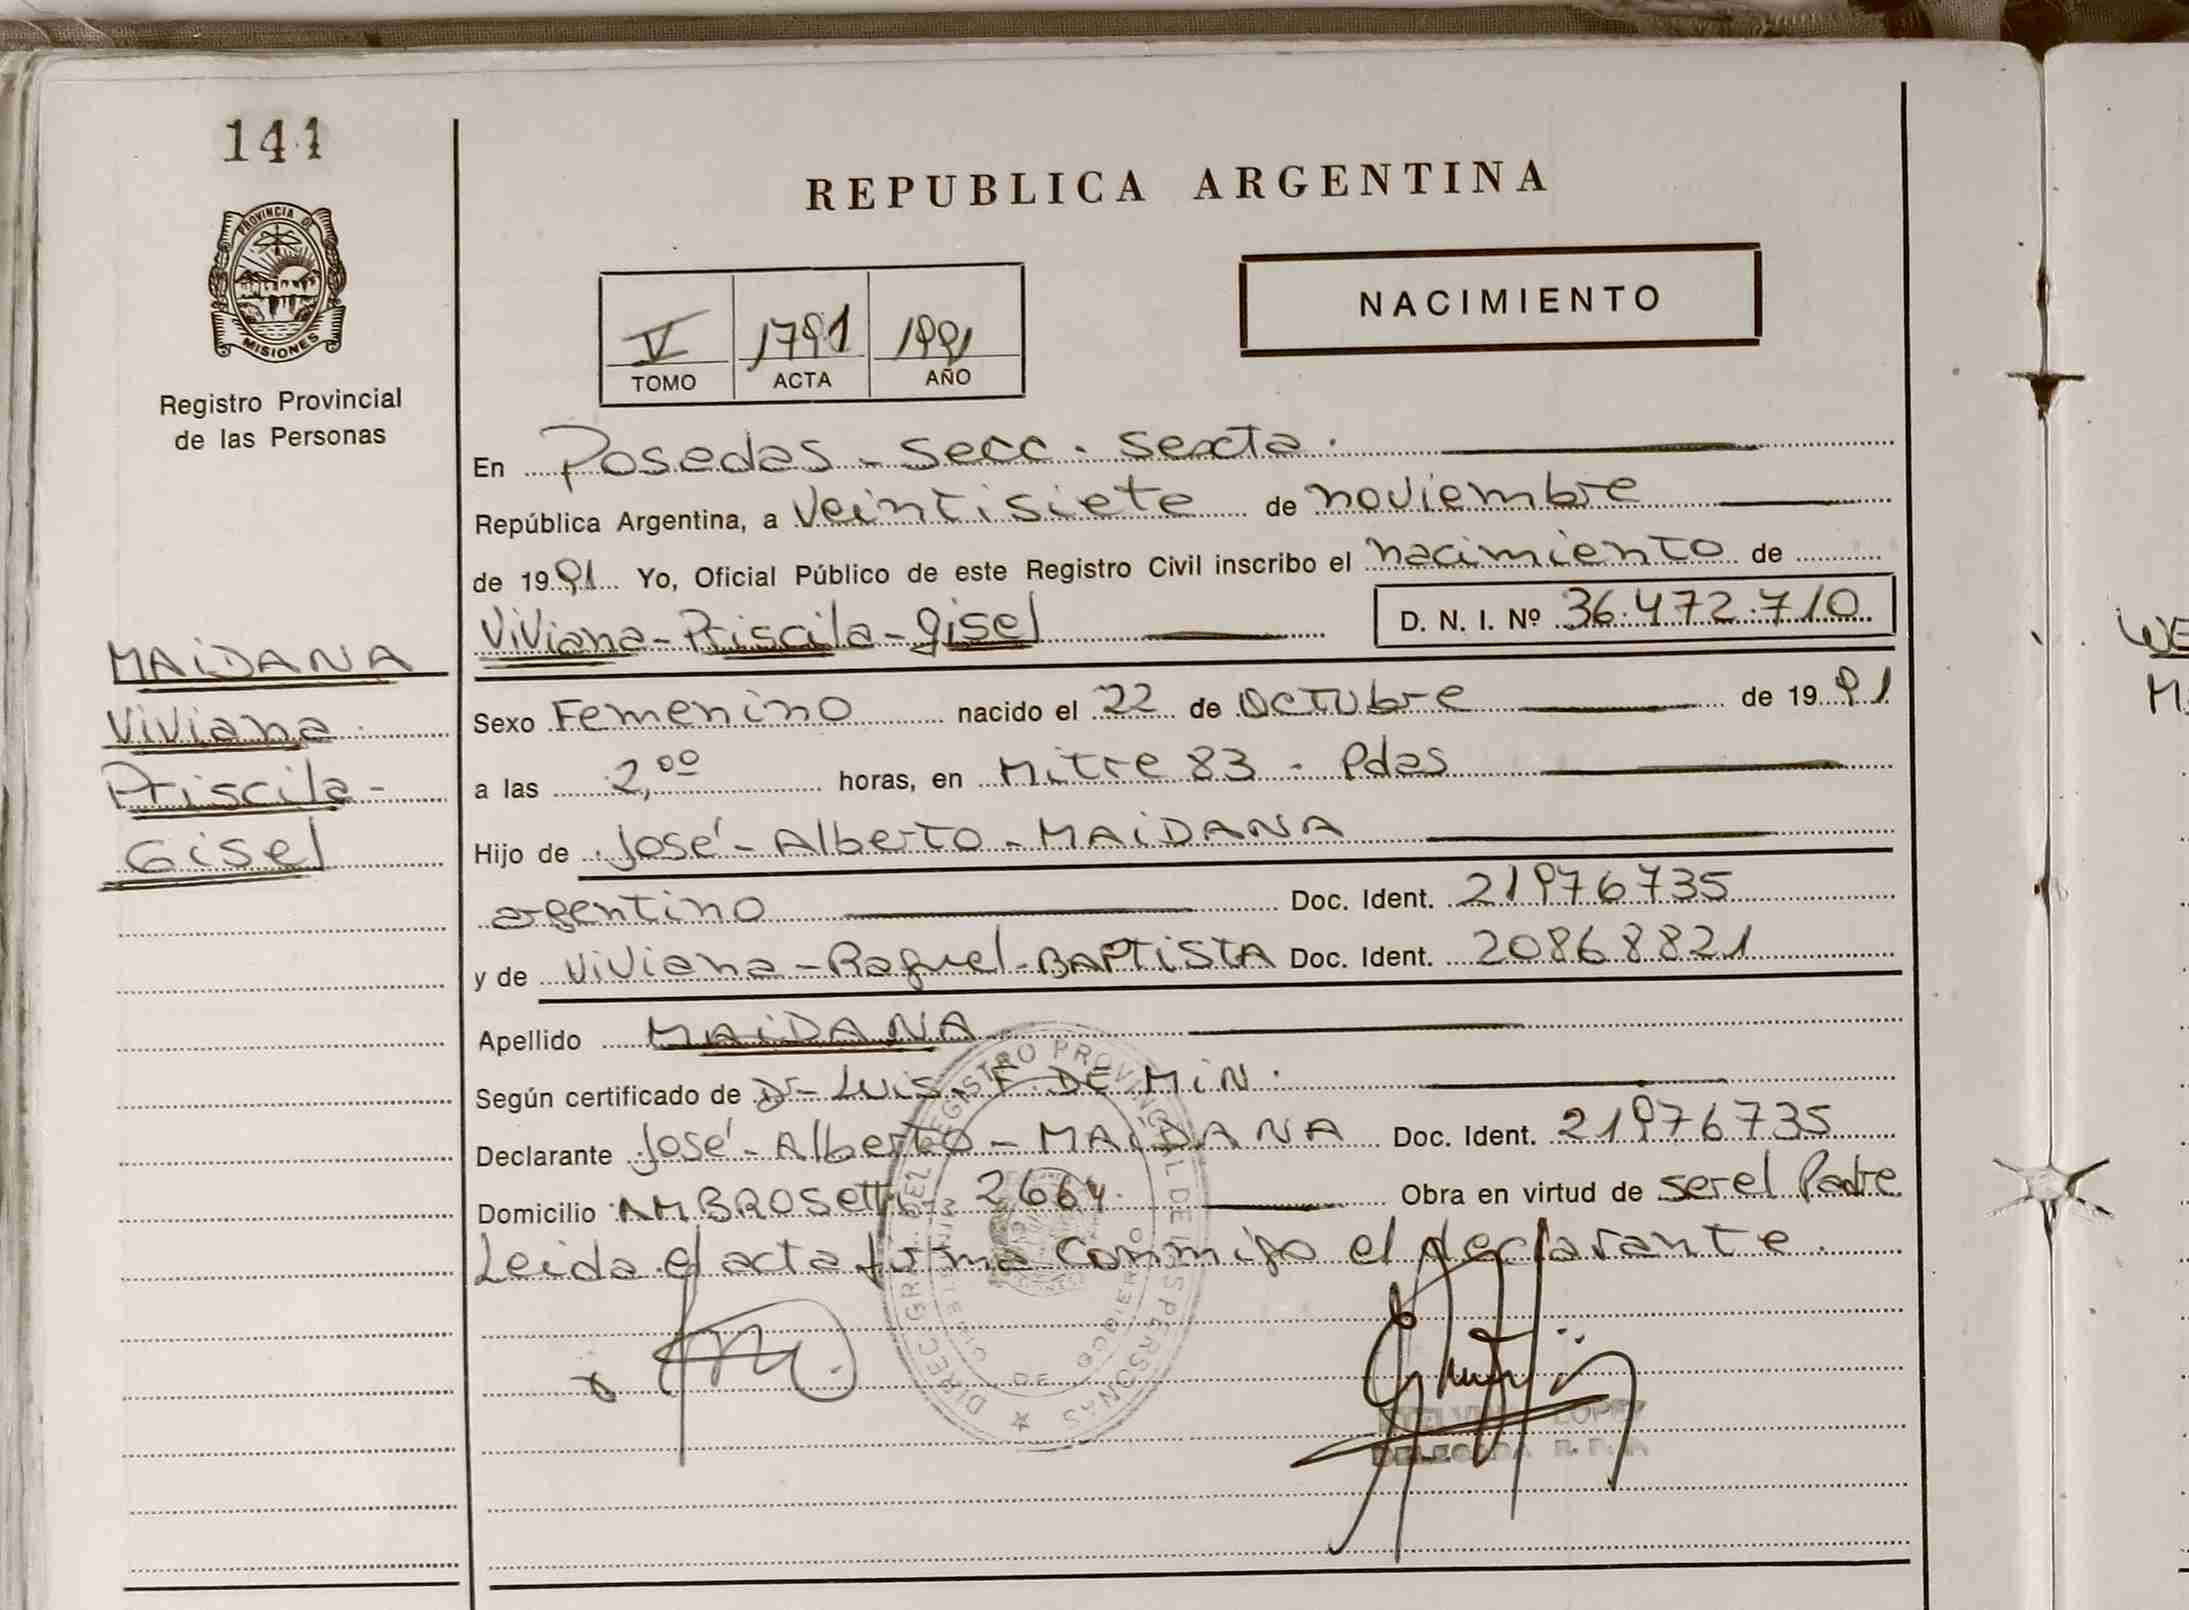 141
PROVINCIA DE
MISIONES
Registro Provincial
de las Personas
MAiDANA
Viviana
Priscila-
Gisel
REPUBLICA ARGENTINA
NACIMIENTO
V 1791 1991
TOMO ACTA AÑO
En Posadas - secc. sexta.
República Argentina, a veintisiete de noviembre
de 1991 Yo, Oficial Público de este Registro Civil inscribo el nacimiento de
Viviana-Priscila-gisel D. N. I. Nº 36.472.710
Sexo Femenino nacido el 22 de octubre de 1991
a las 2,00 horas, en Mitre 83 - Pdas
Hijo de José-Alberto-MAiDANA
argentino Doc. Ident. 21976735
y de Viviana-Raquel-BAPTiSTA Doc. Ident. 20868821
Apellido MAiDANA
Según certificado de Dr- LUiS. F. DE MiN.
Declarante José-Alberto-MAiDANA Doc. Ident. 21976735
Domicilio AMBROSetti 2664. Obra en virtud de ser el Padre
Leida el acta firma conmigo el declarante.
DIREC. GRAL. DEL REGISTRO PROVINCIAL DE LAS PERSONAS
MINISTERIO DE GOBIERNO
LOPEZ
DELEGADA R. P. P.
WE
M